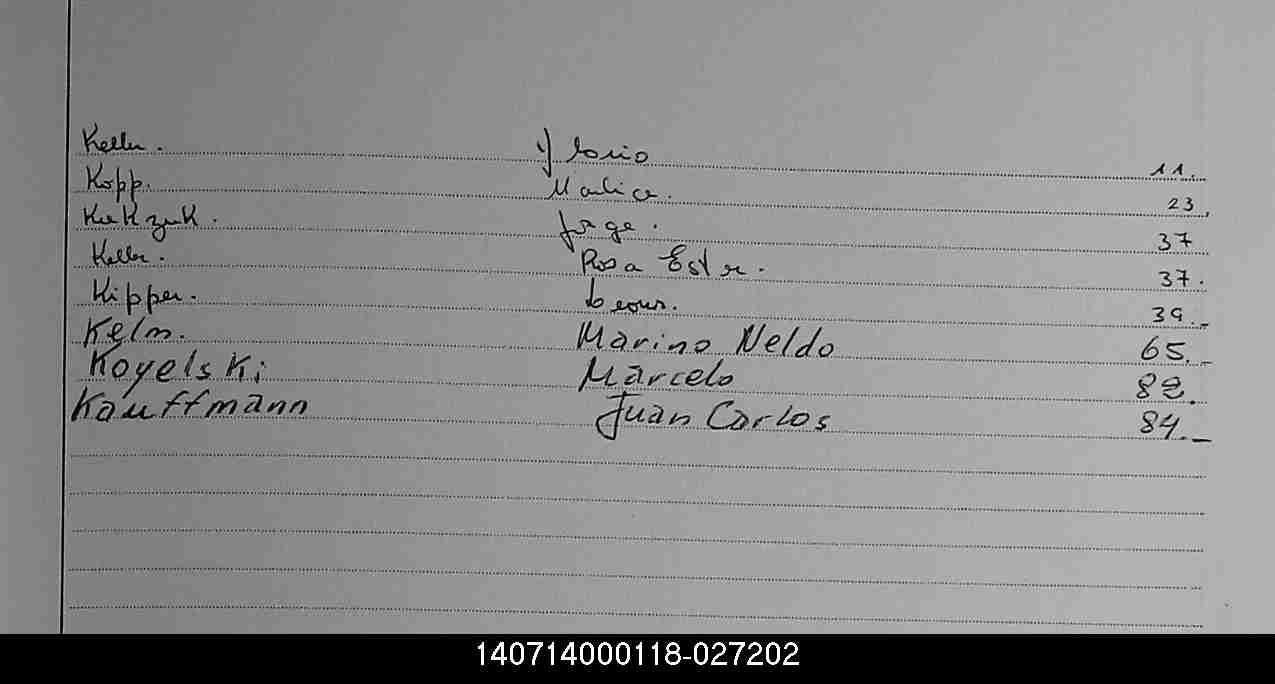 Keller. 11.
Kopp. 23.
Jorge. 37
Keller. Rosa Ester. 37.
Kipper. 39.-
Kelm. Marino Neldo 65.-
Koyelski Marcelo 82.
Kauffmann Juan Carlos 84.-
140714000118-027202